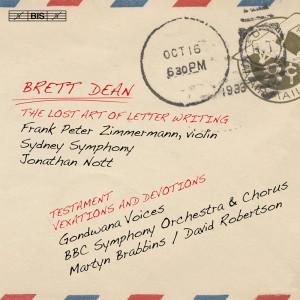 BIS
OCT 16
6:30PM
BRETT DEAN
THE LOST ART OF LETTER WRITING
Frank Peter Zimmermann, violin
Sydney Symphony
Jonathan Nott
TESTAMENT
VEXATIONS AND DEVOTIONS
Gondwana Voices
BBC Symphony Orchestra & Chorus
Martyn Brabbins / David Robertson